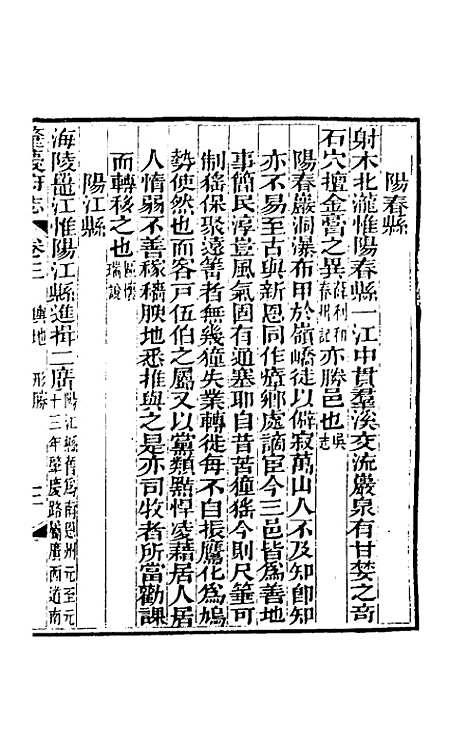 陽春縣
射木北瀧惟陽春縣一江中貫羣溪交流巖泉有甘婪之奇
石穴擅金膏之異蘇利和春州記亦勝邑也吳志
陽春巖洞瀑布甲於嶺嶠徒以僻寂萬山人不及知卽知
亦不易至古與新恩同作瘴鄕處謫宦今三邑皆爲善地
事簡民淳豈風氣固有通塞耶自昔苦獞猺今則尺箠可
制猺保聚遠箐者無幾獞失業轉徙每不自振鷹化爲鳩
勢使然也而客戸伍伯之屬又以黨類黠悍凌藉居人居
人惰弱不善稼穡腴地悉推與之是亦司牧者所當勸課
而轉移之也瑞說
陽江縣
海陵鼉江惟陽江縣進揖二廣陽江縣舊爲南恩州元至元十三年肇慶路屬廣西道南
肇慶府志 卷三 輿地 形勝